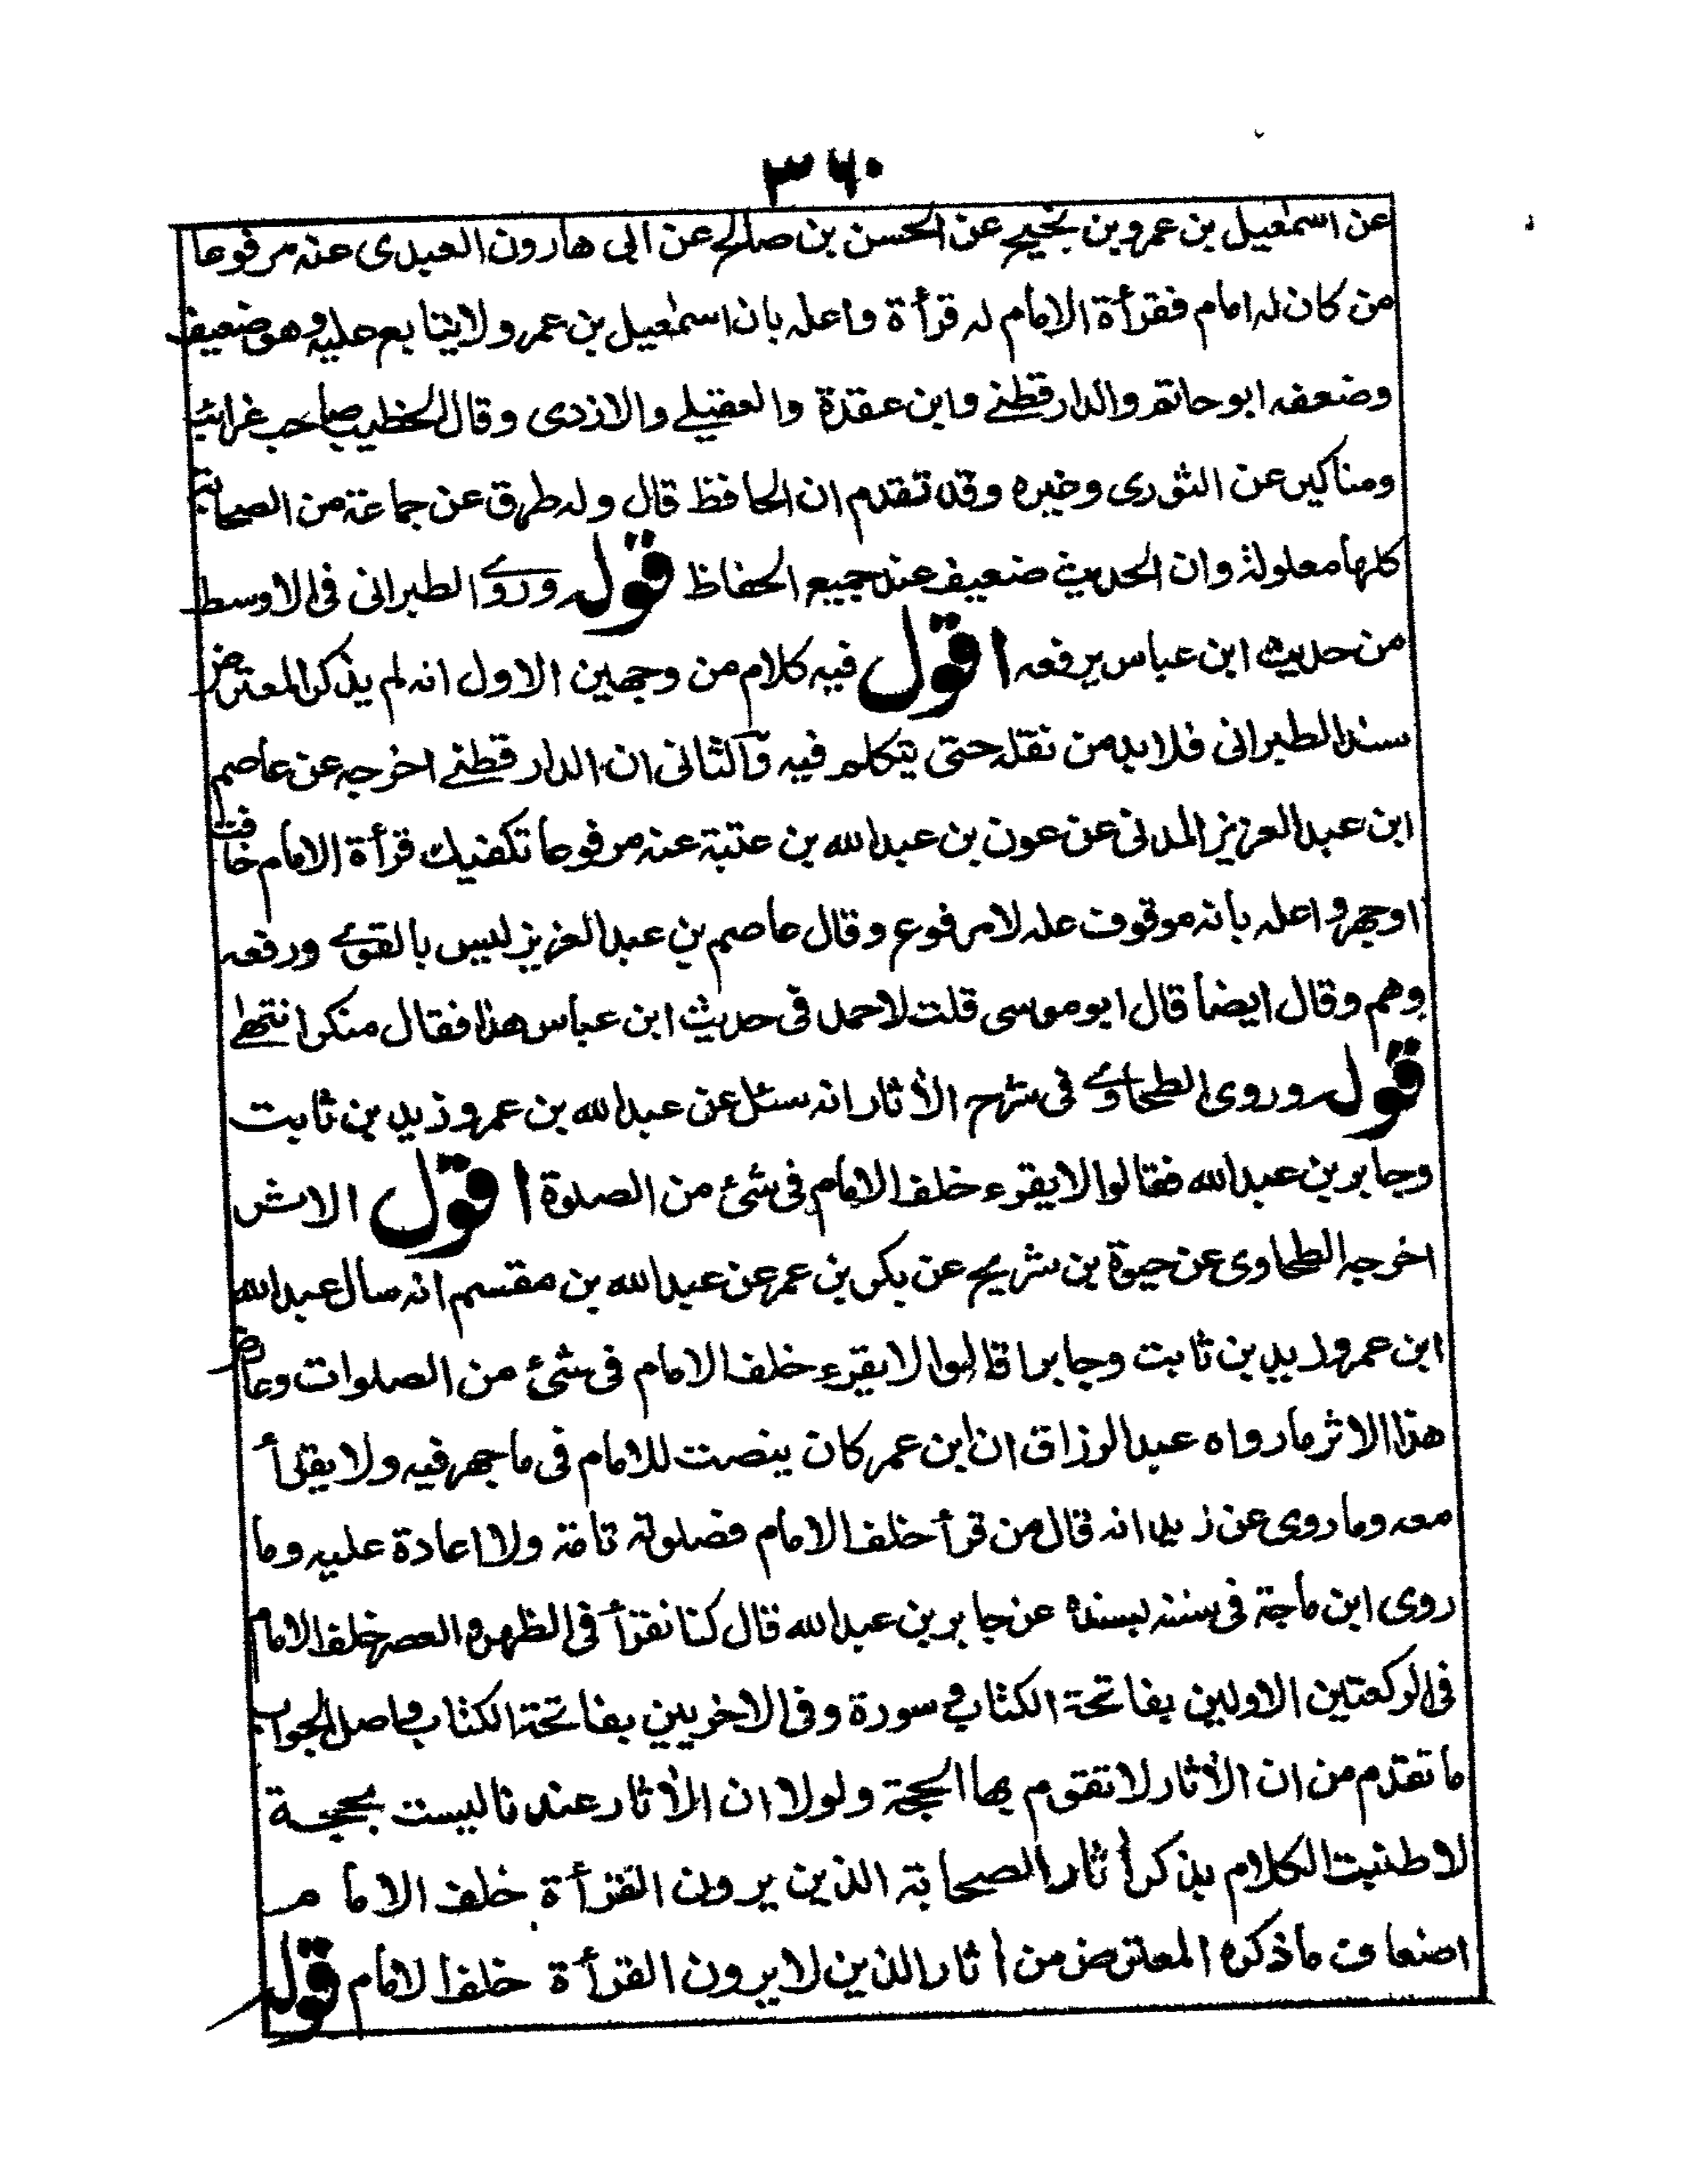 ٣٦٠
عن اسمٰعيل بن عمرو بن نجيح عن الحسن بن صالح عن ابى هارون العبدى عنه مرفوعا
من كان له امام فقرأة الامام له قرأة واعله بان اسمٰعيل بن عمرو لايتابع عليه وهو ضعيف
وضعفه ابو حاتم والدارقطنے وابن عقدة والعقيلے والازدى وقال الخطيب صاحب غرائب
ومناكير عن الثورى وغيره وقد تقدم ان الحافظ قال وله طرق عن جماعة من الصحابة
كلها معلولة وان الحديث ضعيف عند جميع الحفاظ قوله وروے الطبرانى فى الاوسط
من حديث ابن عباس يرفعه اقول فيه كلام من وجهين الاول انه لم يذكر المعترض
سند الطبرانى فلابد من نقله حتى يتكلم فيه والثانى ان الدارقطنے اخرجه عن عاصم
ابن عبد العزيز المدنى عن عون بن عبد الله بن عتبة عنه مرفوعا تكفيك قرأة الامام خافت
اوجهر واعله بانه موقوف عله لامرفوع وقال عاصم بن عبد العزيز ليس بالقوے ورفعه
وهم وقال ايضا قال ابو موسى قلت لاحمد فى حديث ابن عباس هذا فقال منكر انتهے
قوله وروى الطحاوے فى شرح الأثار انه سئل عن عبد الله بن عمر وزيد بن ثابت
وجابر بن عبد الله فقالوا لايقرء خلف الامام فى شئ من الصلوة اقول الاثر
اخرجه الطحاوى عن حيوة بن شريح عن بكر بن عمر عن عبد الله بن مقسم انه سال عبد الله
ابن عمر وزيد بن ثابت وجابرا قالوا لايقرء خلف الامام فى شئ من الصلوات وعارض
هذا الاثر مارواه عبد الرزاق ان ابن عمر كان ينصت للامام فى ماجهر فيه ولا يقرأ
معه وما روى عن زيد انه قال من قرأ خلف الامام فصلوته تامة ولا اعادة عليه وما
روى ابن ماجة فى سننه بسنده عن جابر بن عبد الله قال كنا نقرأ فى الظهر والعصر خلف الامام
فى الركعتين الاوليين بفاتحة الكتاب و سورة وفى الاخريين بفاتحة الكتاب واصل الجواب
ماتقدم من ان الأثار لاتقوم بها الحجة ولولا ان الأثار عندنا ليست بحجة
لاطنبت الكلام بذكر أثار الصحابة الذين يرون القرأة خلف الامام
اضعاف ماذكره المعترض من أثار الذين لايرون القرأة خلف الامام قوله